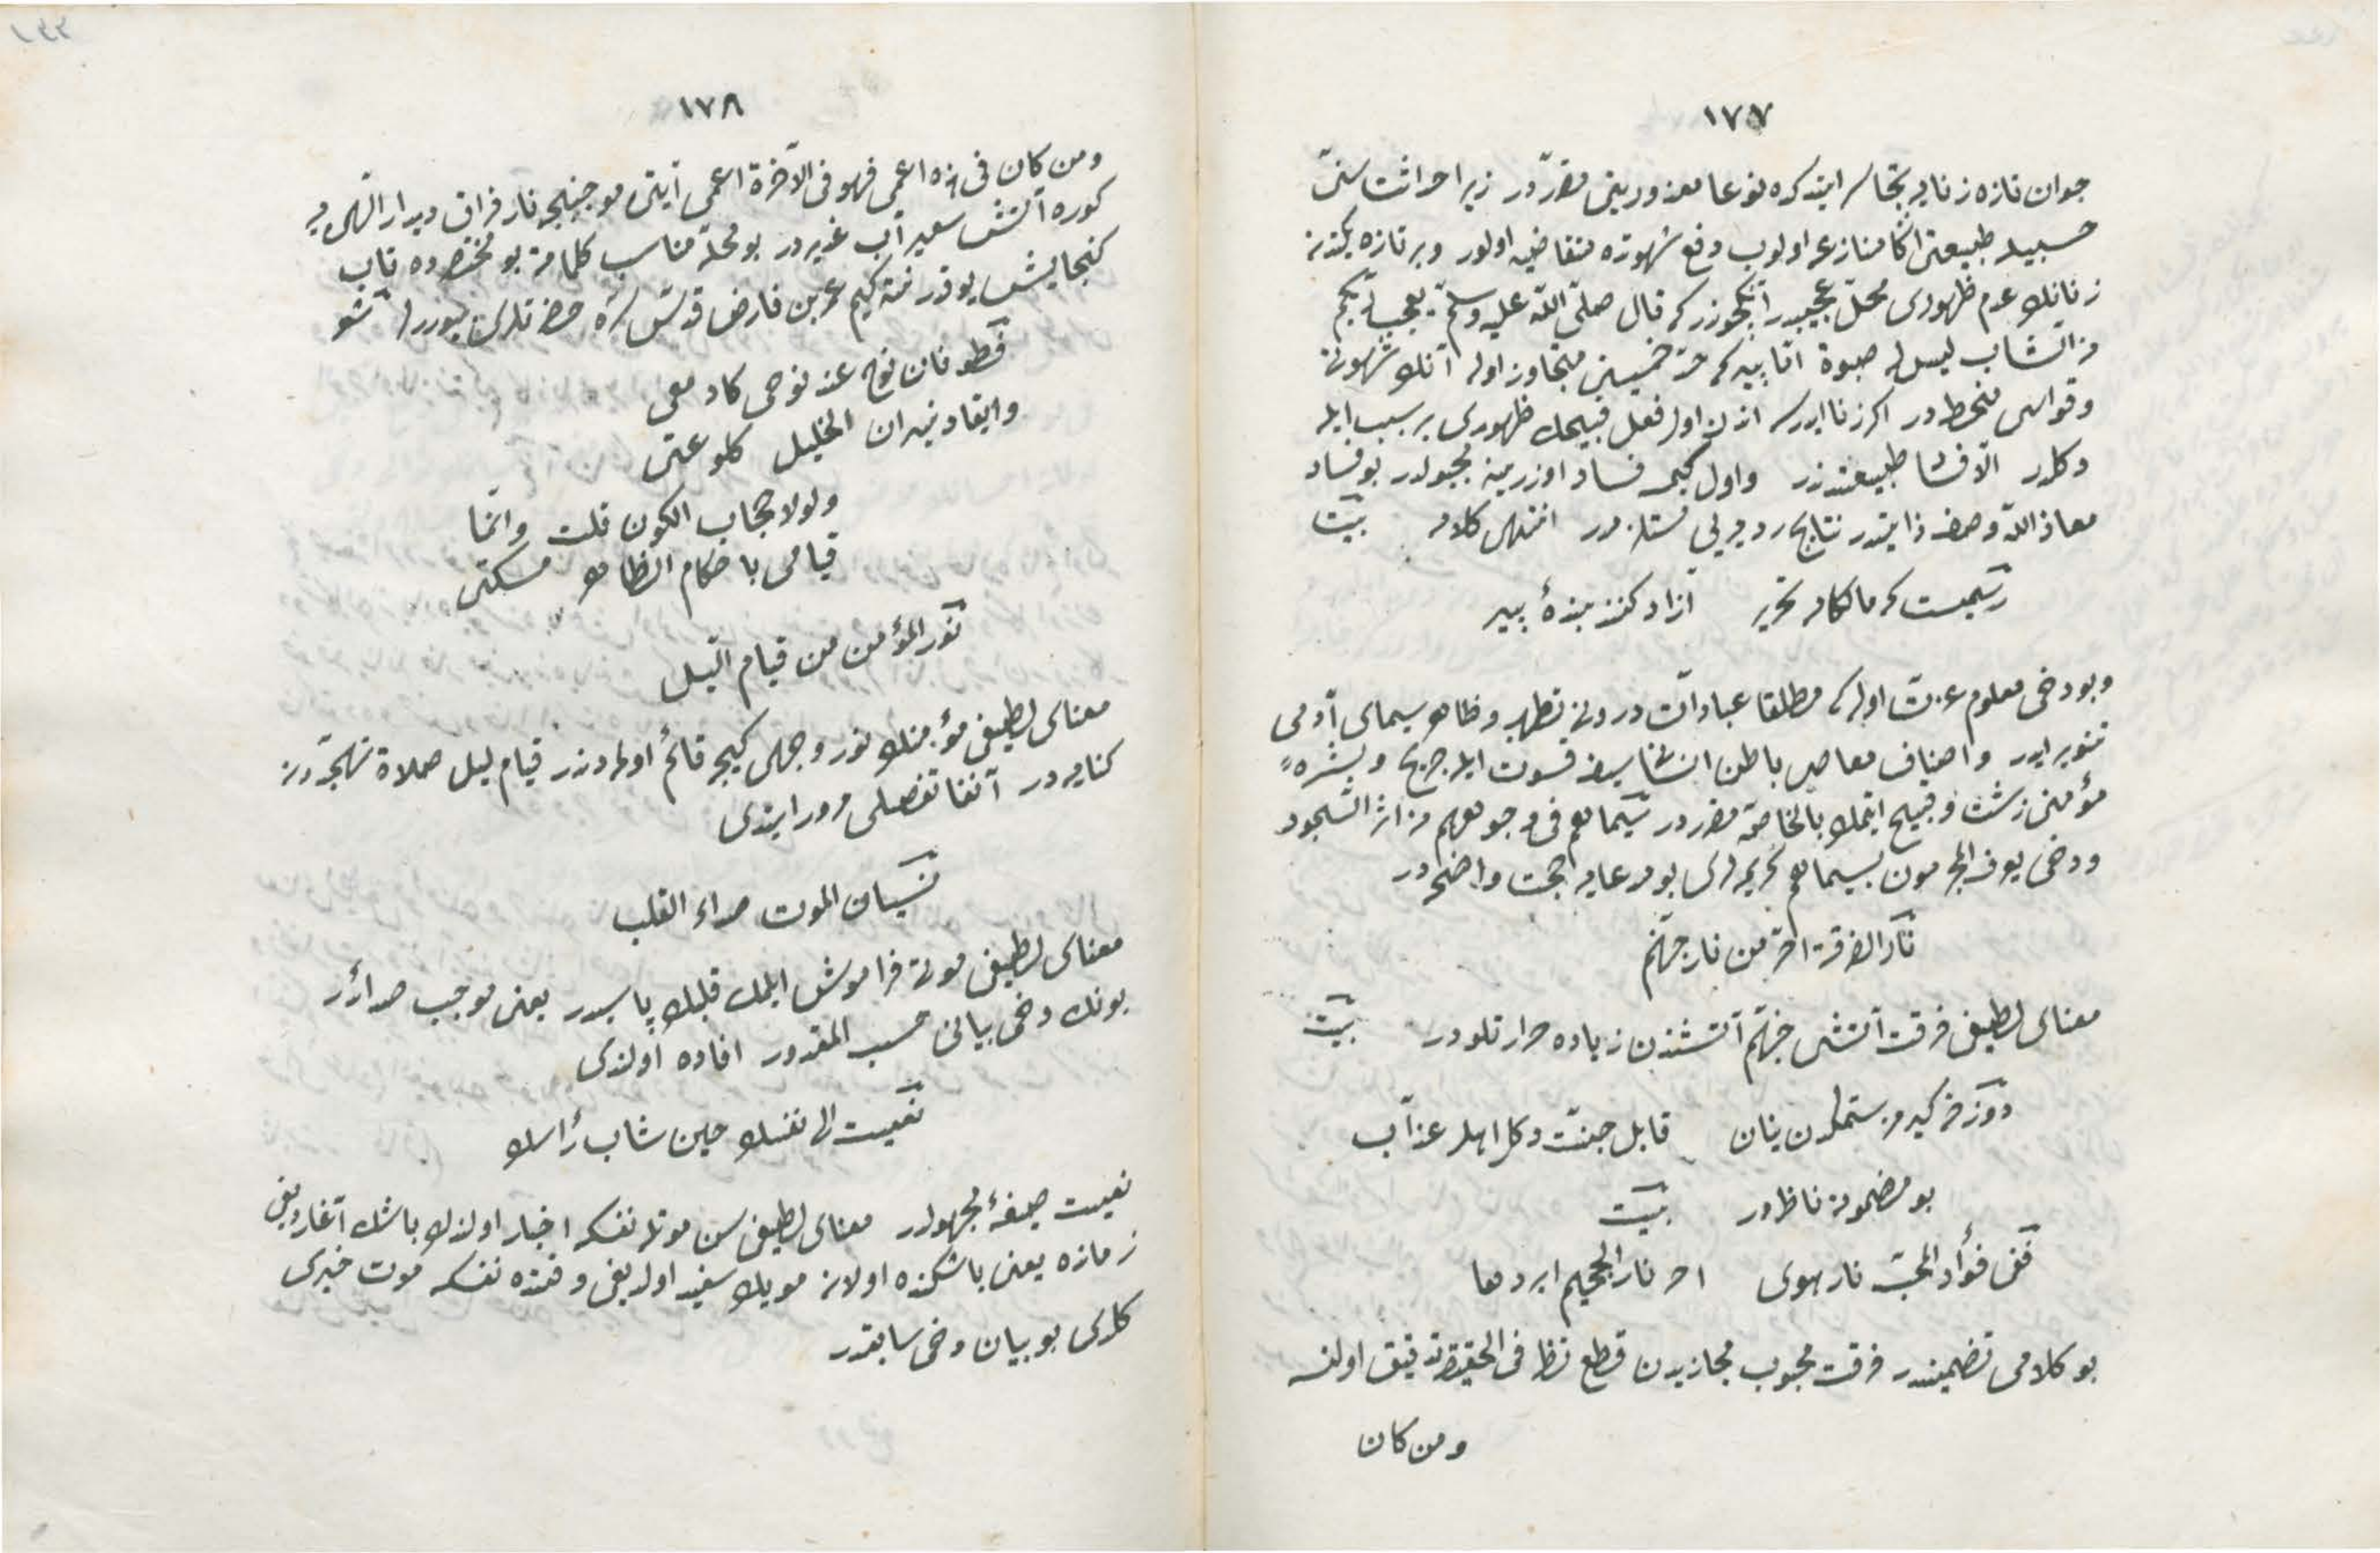 ١٧٧
جوان تازه زنايه تجاسر ايتدكده نوعا معذور ايتدیكی مقرّردر زيرا حداثت سنّی
حسبيله طبيعتی اڭا منازعه اولوب دفع شهوتده متقاضیه اولور وبر تازه يكيتدن
زنانك عدم ظهوری محلّ عجيبدر آنكچوندر كه قال صلّی اللّه عليه وسلّم يعجب ربّكم
من الشّاب ليس له صبوة امّا پير كه حدّ خمسينی متجاوز اوله آنك شهوتی
وقواسی منحطدر اكر زنا ايدرسه اندن اول فعل قبيحك ظهوری بر سبب ايله
دكلدر الّا فساد طبيعتدندر واول كيمسه فساد اوزرينه مجبولدر بو فساد
معاذ اللّه وصف ذاتيدر نتايج رديه يی مستلزمدر انتهی كلامه بيت
رسميست كه مالكان تحرير آزاد كنند بندۀ پير
وبو دخی معلوم عزّت اوله كه مطلقا عبادات درونی تطهير وظاهر سيمای آدمی
تنوير ايدر واصناف معاصی باطن انسانی سيف قسوت ايله جريح وبشرهٔ
مؤمنی زشت وقبيح ايتمك بالخاصّه مقرردر سيماهم فی وجوههم من اثر السّجود
ودخی يعرف المجرمون بسيماهم كريمه لری بو مدعايه حجت واضحه در
نار الفرقة احرّ من نار جهنّم
معنای لطيفی فرقت آتشی جهنّم آتشندن زياده حرارتلودر بيت
دوزخه كيرمز ستمكدن ينان قابل جنّت دكل اهل عذاب
بو مضمونه ناظردر بيت
ففی فؤاد المحبّ نار هوی احر نار الجحيم ابردها
بو كلامی تضمیندر فرقت محبوب مجازيدن قطع نظر فی الحقيقه تدقيق اولنسه
ومن كان
١٧٨
ومن كان فی هذه اعمی فهو فی الآخرة اعمی آيتی موجبنجه نار فراق ديدار الهی يه
كوره آتش سعير آب غديردر بو محلّه مناسب كلماته بو مختصرده تاب
كنجايش يوقدر نته كيم عمر بن فارض قدّس سرّه حضرتلری بيوررلر شعر
فطوفان نوح عند نوحی كادمعی
وايقاد نيران الخليل كلوعتی
ولولا حجاب الكون قلت وانّما
قيامی باحكام الظاهر مسكتی
نور المؤمن من قيام الليل
معنای لطيفی مؤمنك نور وجهی كيجه قائم اولمه دندر قيام ليل صلاة تهجّددن
كنايه در آنفا تفصيلی مرور ايتدی
نسيان الموت صداء القلب
معنای لطيفی موتی فراموش ايلمك قلبك پاسيدر يعنی موجب صدادر
بونك دخی بيانی حسب المقدور افاده اولندی
نعيت الی نفسك حين شاب رأسك
نعيت صيغۀ مجهولدر معنای لطيفی سن موتله نفسكه اخبار اولندك باشك آغارديغی
زمانده يعنی باشكده اولان مويك سفيد اولديغی وقتده نفسكه موت خبری
كلدی بو بيان دخی سابقدر